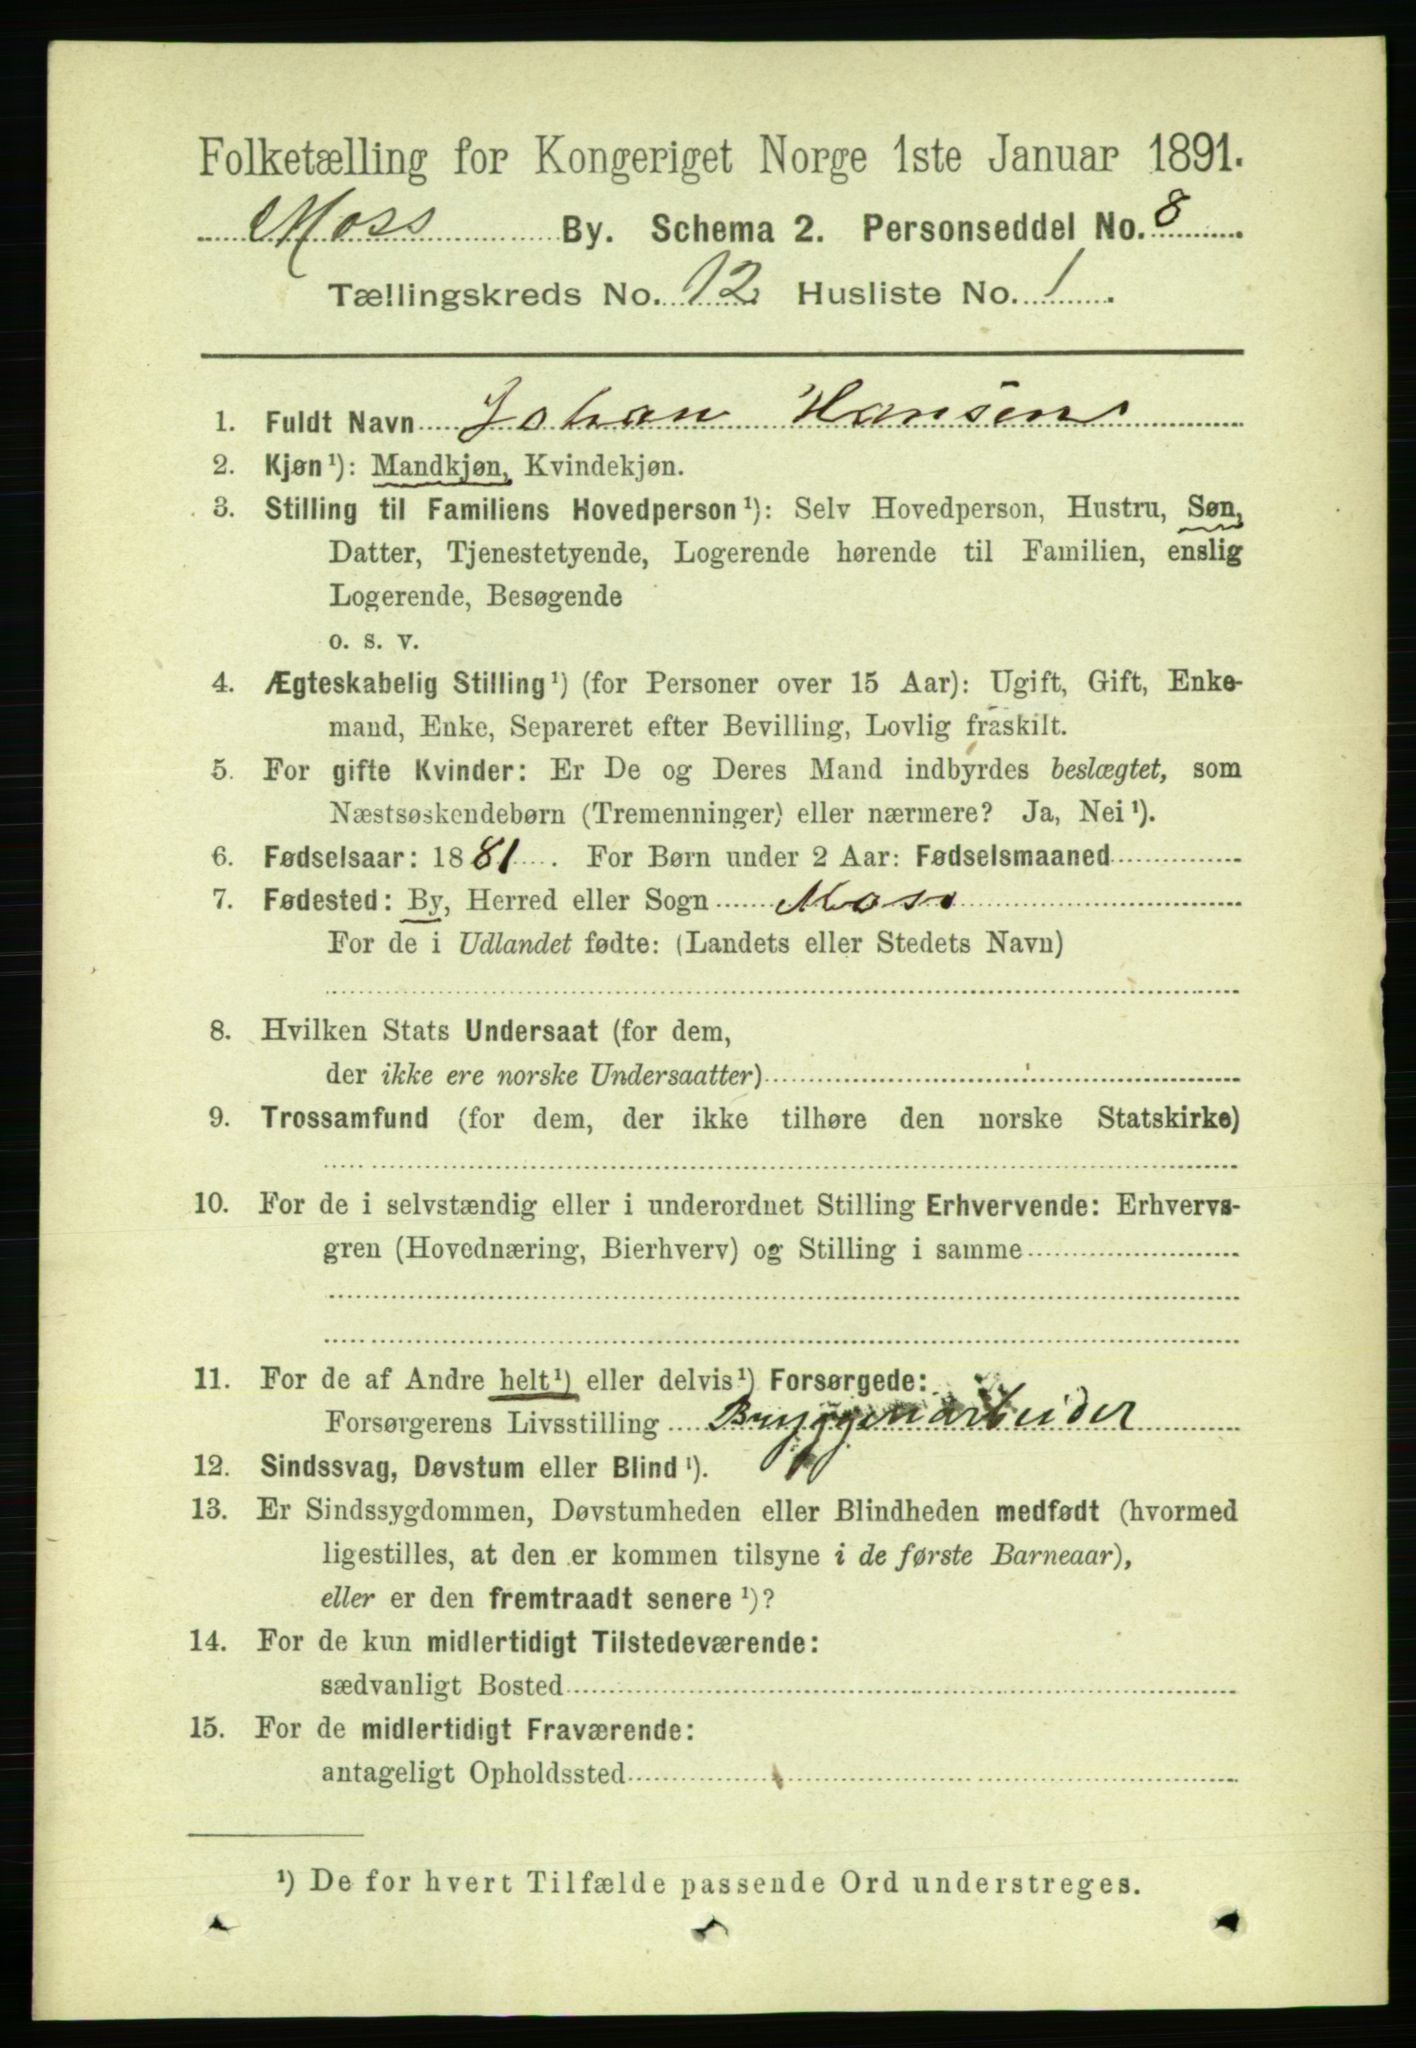 Folketælling for Kongeriget Norge 1ste Januar 1891.
Moss By. Schema 2. Personseddel No. 8
Tællingskreds No. 12 Husliste No. 1.
1. Fuldt Navn Johan Hansen
2. Kjøn¹): Mandkjøn, Kvindekjøn.
3. Stilling til Familiens Hovedperson¹): Selv Hovedperson, Hustru, Søn,
Datter, Tjenestetyende, Logerende hørende til Familien, enslig
Logerende, Besøgende
o. s. v.
4. Ægteskabelig Stilling¹) (for Personer over 15 Aar): Ugift, Gift, Enke-
mand, Enke, Separeret efter Bevilling, Lovlig fraskilt.
5. For gifte Kvinder: Er De og Deres Mand indbyrdes beslægtet, som
Næstsøskendebørn (Tremenninger) eller nærmere? Ja, Nei¹).
6. Fødselsaar: 1881. For Børn under 2 Aar: Fødselsmaaned
7. Fødested: By, Herred eller Sogn Moss
For de i Udlandet fødte: (Landets eller Stedets Navn)
8. Hvilken Stats Undersaat (for dem,
der ikke ere norske Undersaatter)
9. Trossamfund (for dem, der ikke tilhøre den norske Statskirke)
10. For de i selvstændig eller i underordnet Stilling Erhvervende: Erhvervs-
gren (Hovednæring, Bierhverv) og Stilling i samme
11. For de af Andre helt¹) eller delvis¹) Forsørgede:
Forsørgerens Livsstilling Bryggeriarbeider
12. Sindssvag, Døvstum eller Blind¹).
13. Er Sindssygdommen, Døvstumheden eller Blindheden medfødt (hvormed
ligestilles, at den er kommen tilsyne i de første Barneaar),
eller er den fremtraadt senere¹)?
14. For de kun midlertidigt Tilstedeværende:
sædvanligt Bosted
15. For de midlertidigt Fraværende:
antageligt Opholdssted
¹) De for hvert Tilfælde passende Ord understreges.